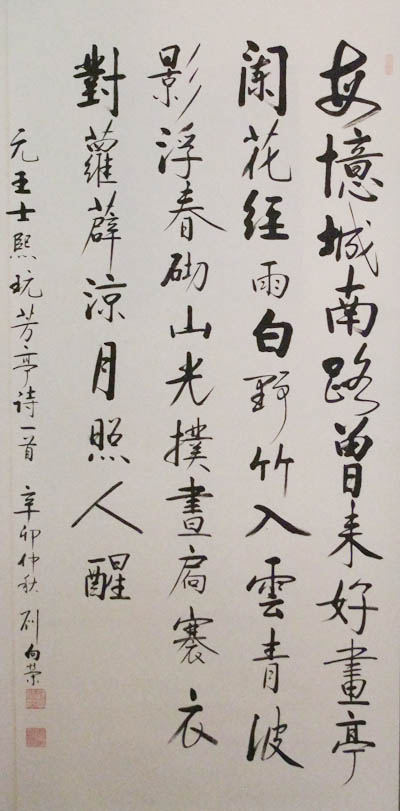 每憶城南路曾来好畫亭
闌花經雨白野竹入雲青波
影浮春砌山光撲晝扃褰衣
對蘿薜涼月照人醒
元王士熙玩芳亭诗一首 辛卯仲秋 刘向荣